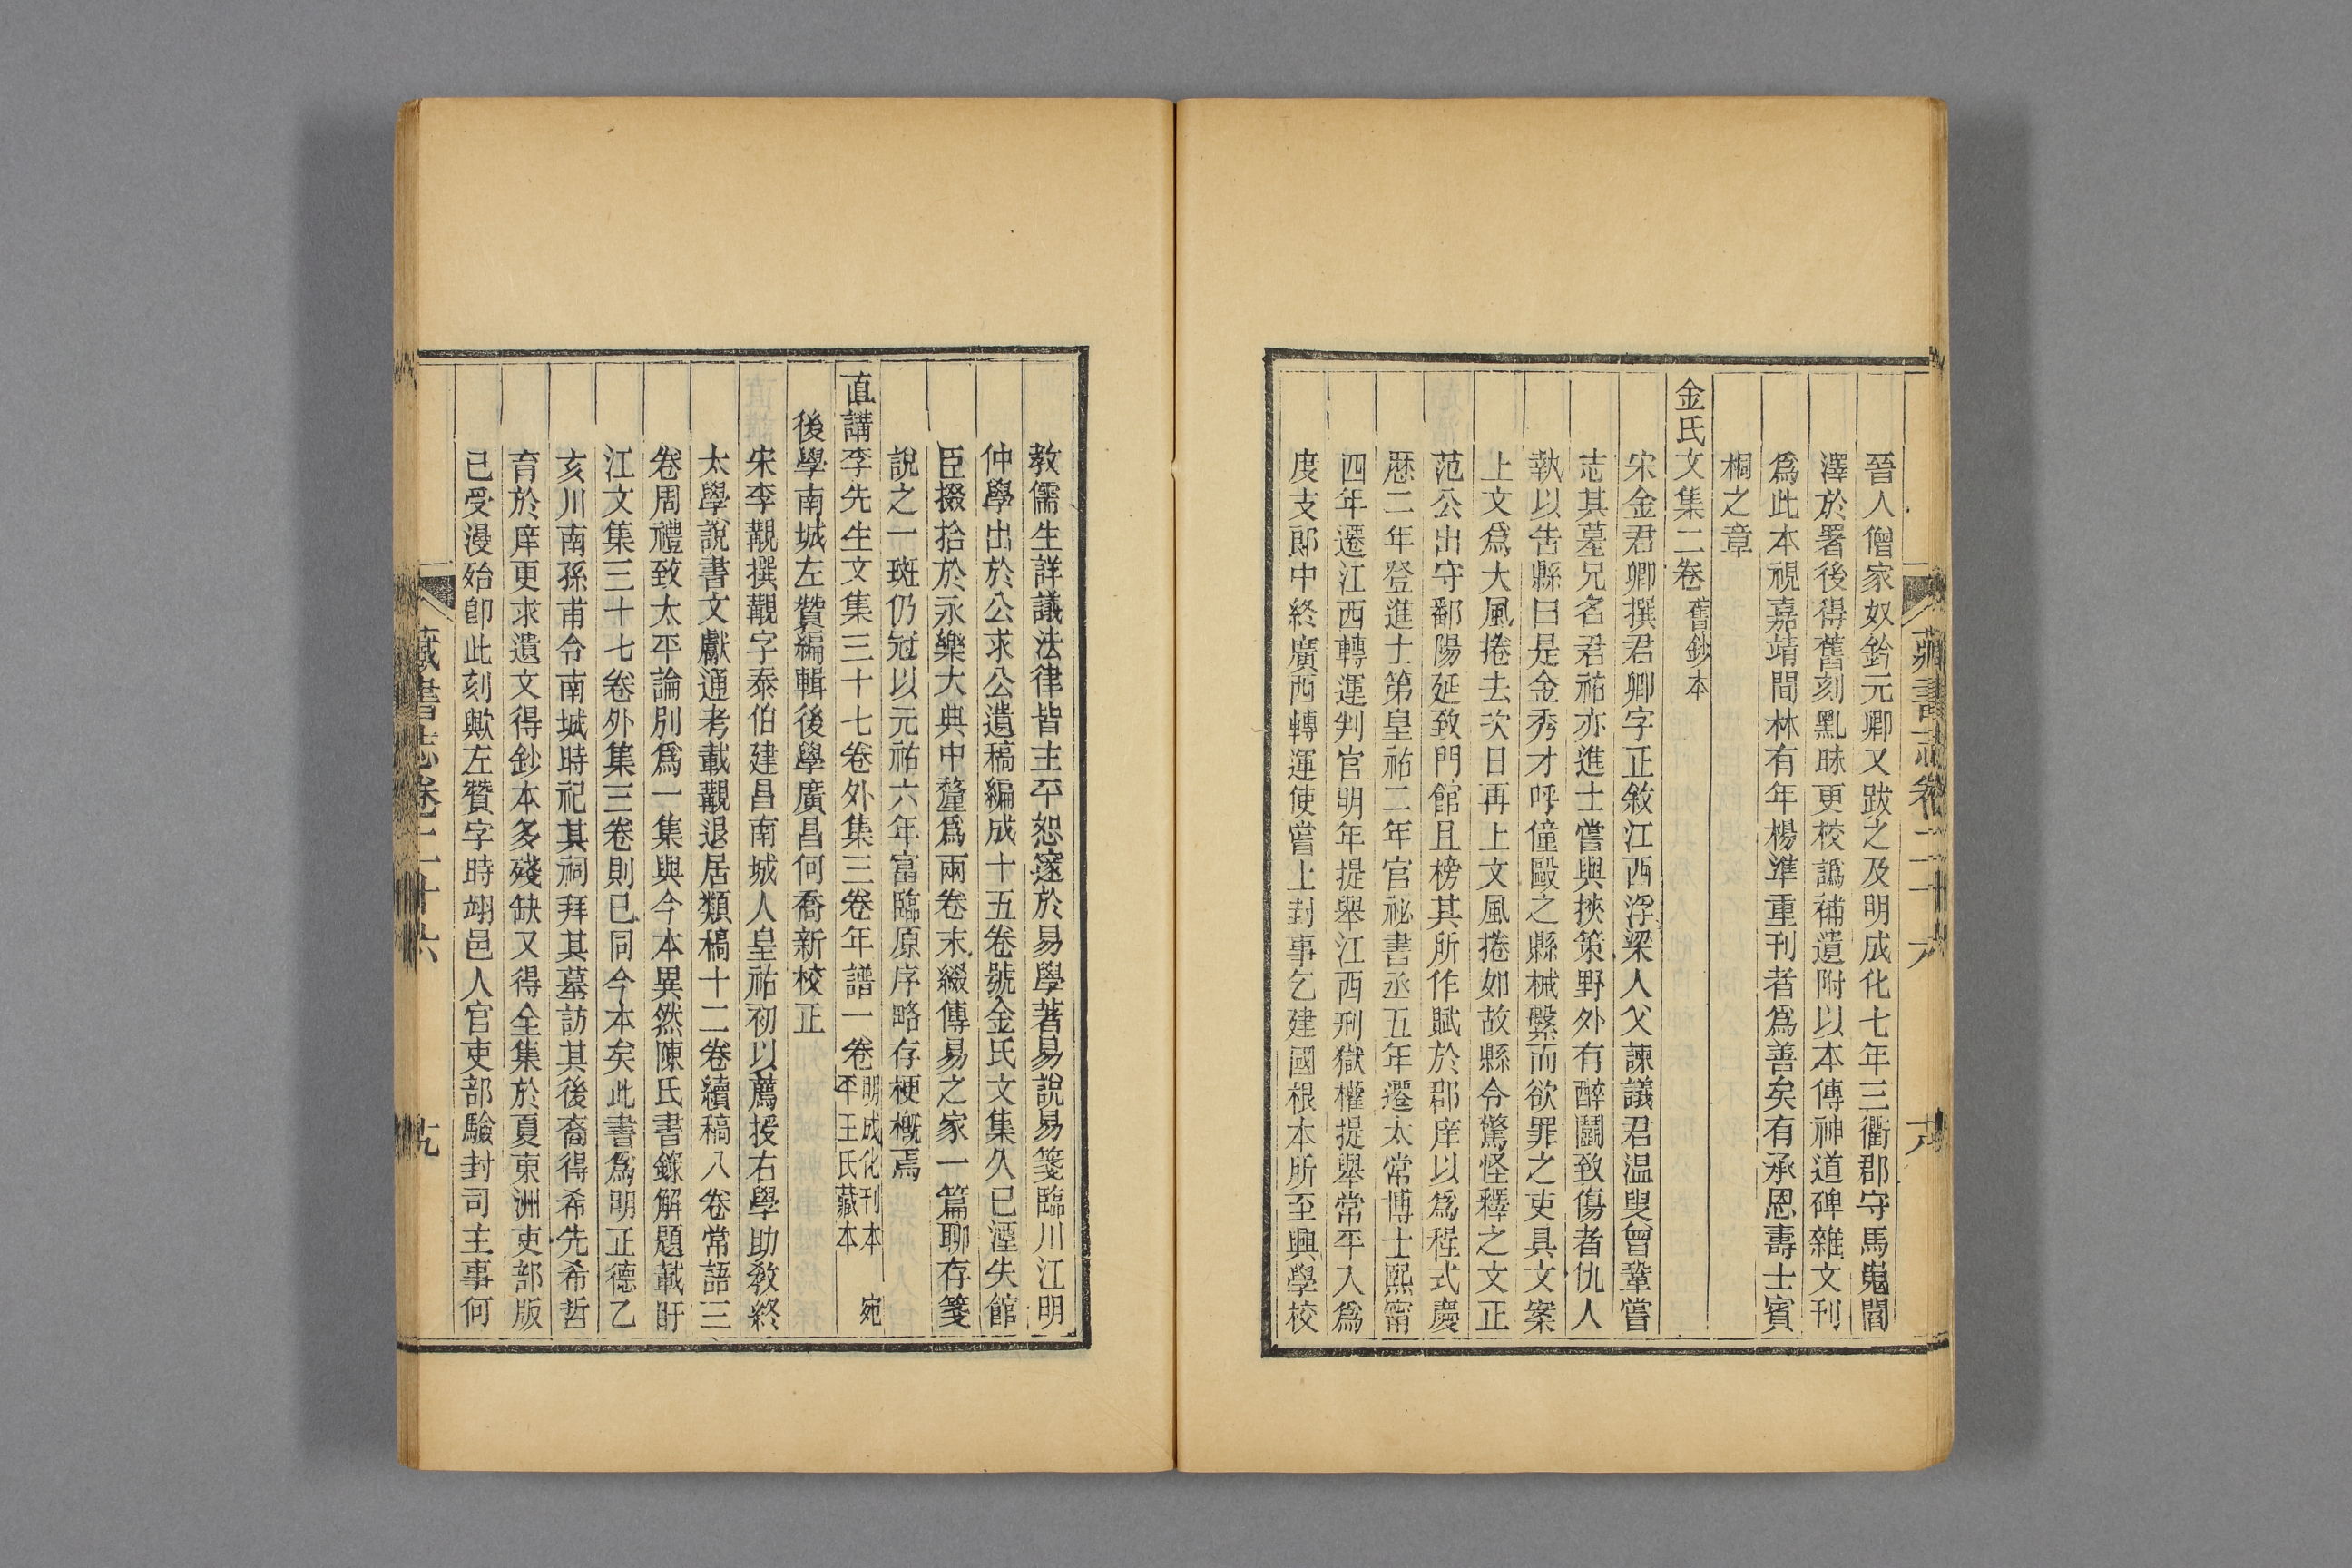 藏書志卷二十六
六
晉人僧家奴鈐元卿又跋之及明成化七年三衢郡守馬嵬閻
澤於署後得舊刻亂昧更校譌補遺附以本傳神道碑雜文刊
爲此本視嘉靖間林有年楊準重刊者爲善矣有承恩壽士賓
桐之章
金氏文集二卷 舊鈔本
宋金君卿撰君卿字正敘江西浮梁人父諫議君温叟曾鞏嘗
志其墓兄名君祐亦進士嘗與挾策野外有醉鬬致傷者仇人
執以告縣曰是金秀才呼僮毆之縣械繫而欲罪之吏具文案
上文爲大風捲去次日再上文風捲如故縣令驚怪釋之文正
范公出守鄱陽延致門館且榜其所作賦於郡庠以爲程式慶
歷二年登進士第皇祐二年官祕書丞五年遷太常博士熙甯
四年遷江西轉運判官明年提舉江西刑獄權提舉常平入爲
度支郎中終廣西轉運使嘗上封事乞建國根本所至興學校
教儒生詳議法律皆主平恕邃於易學著易說易箋臨川江明
仲學出於公求公遺稿編成十五卷號金氏文集久已湮失館
臣掇拾於永樂大典中釐爲兩卷末綴傳易之家一篇聊存箋
說之一斑仍冠以元祐六年富臨原序略存梗槪焉
直講李先生文集三十七卷外集三卷年譜一卷 明成化刊本 宛平王氏藏本
後學南城左贊編輯後學廣昌何喬新校正
宋李覯撰覯字泰伯建昌南城人皇祐初以薦授右學助教終
太學說書文獻通考載覯退居類稿十二卷續稿八卷常語三
卷周禮致太平論別爲一集與今本異然陳氏書錄解題載盱
江文集三十七卷外集三卷則已同今本矣此書爲明正德乙
亥川南孫甫令南城時祀其祠拜其墓訪其後裔得希先希哲
育於庠更求遺文得鈔本多殘缺又得全集於夏東洲吏部版
已受漫殆卽此刻歟左贊字時翊邑人官吏部驗封司主事何
藏書志卷二十六
九